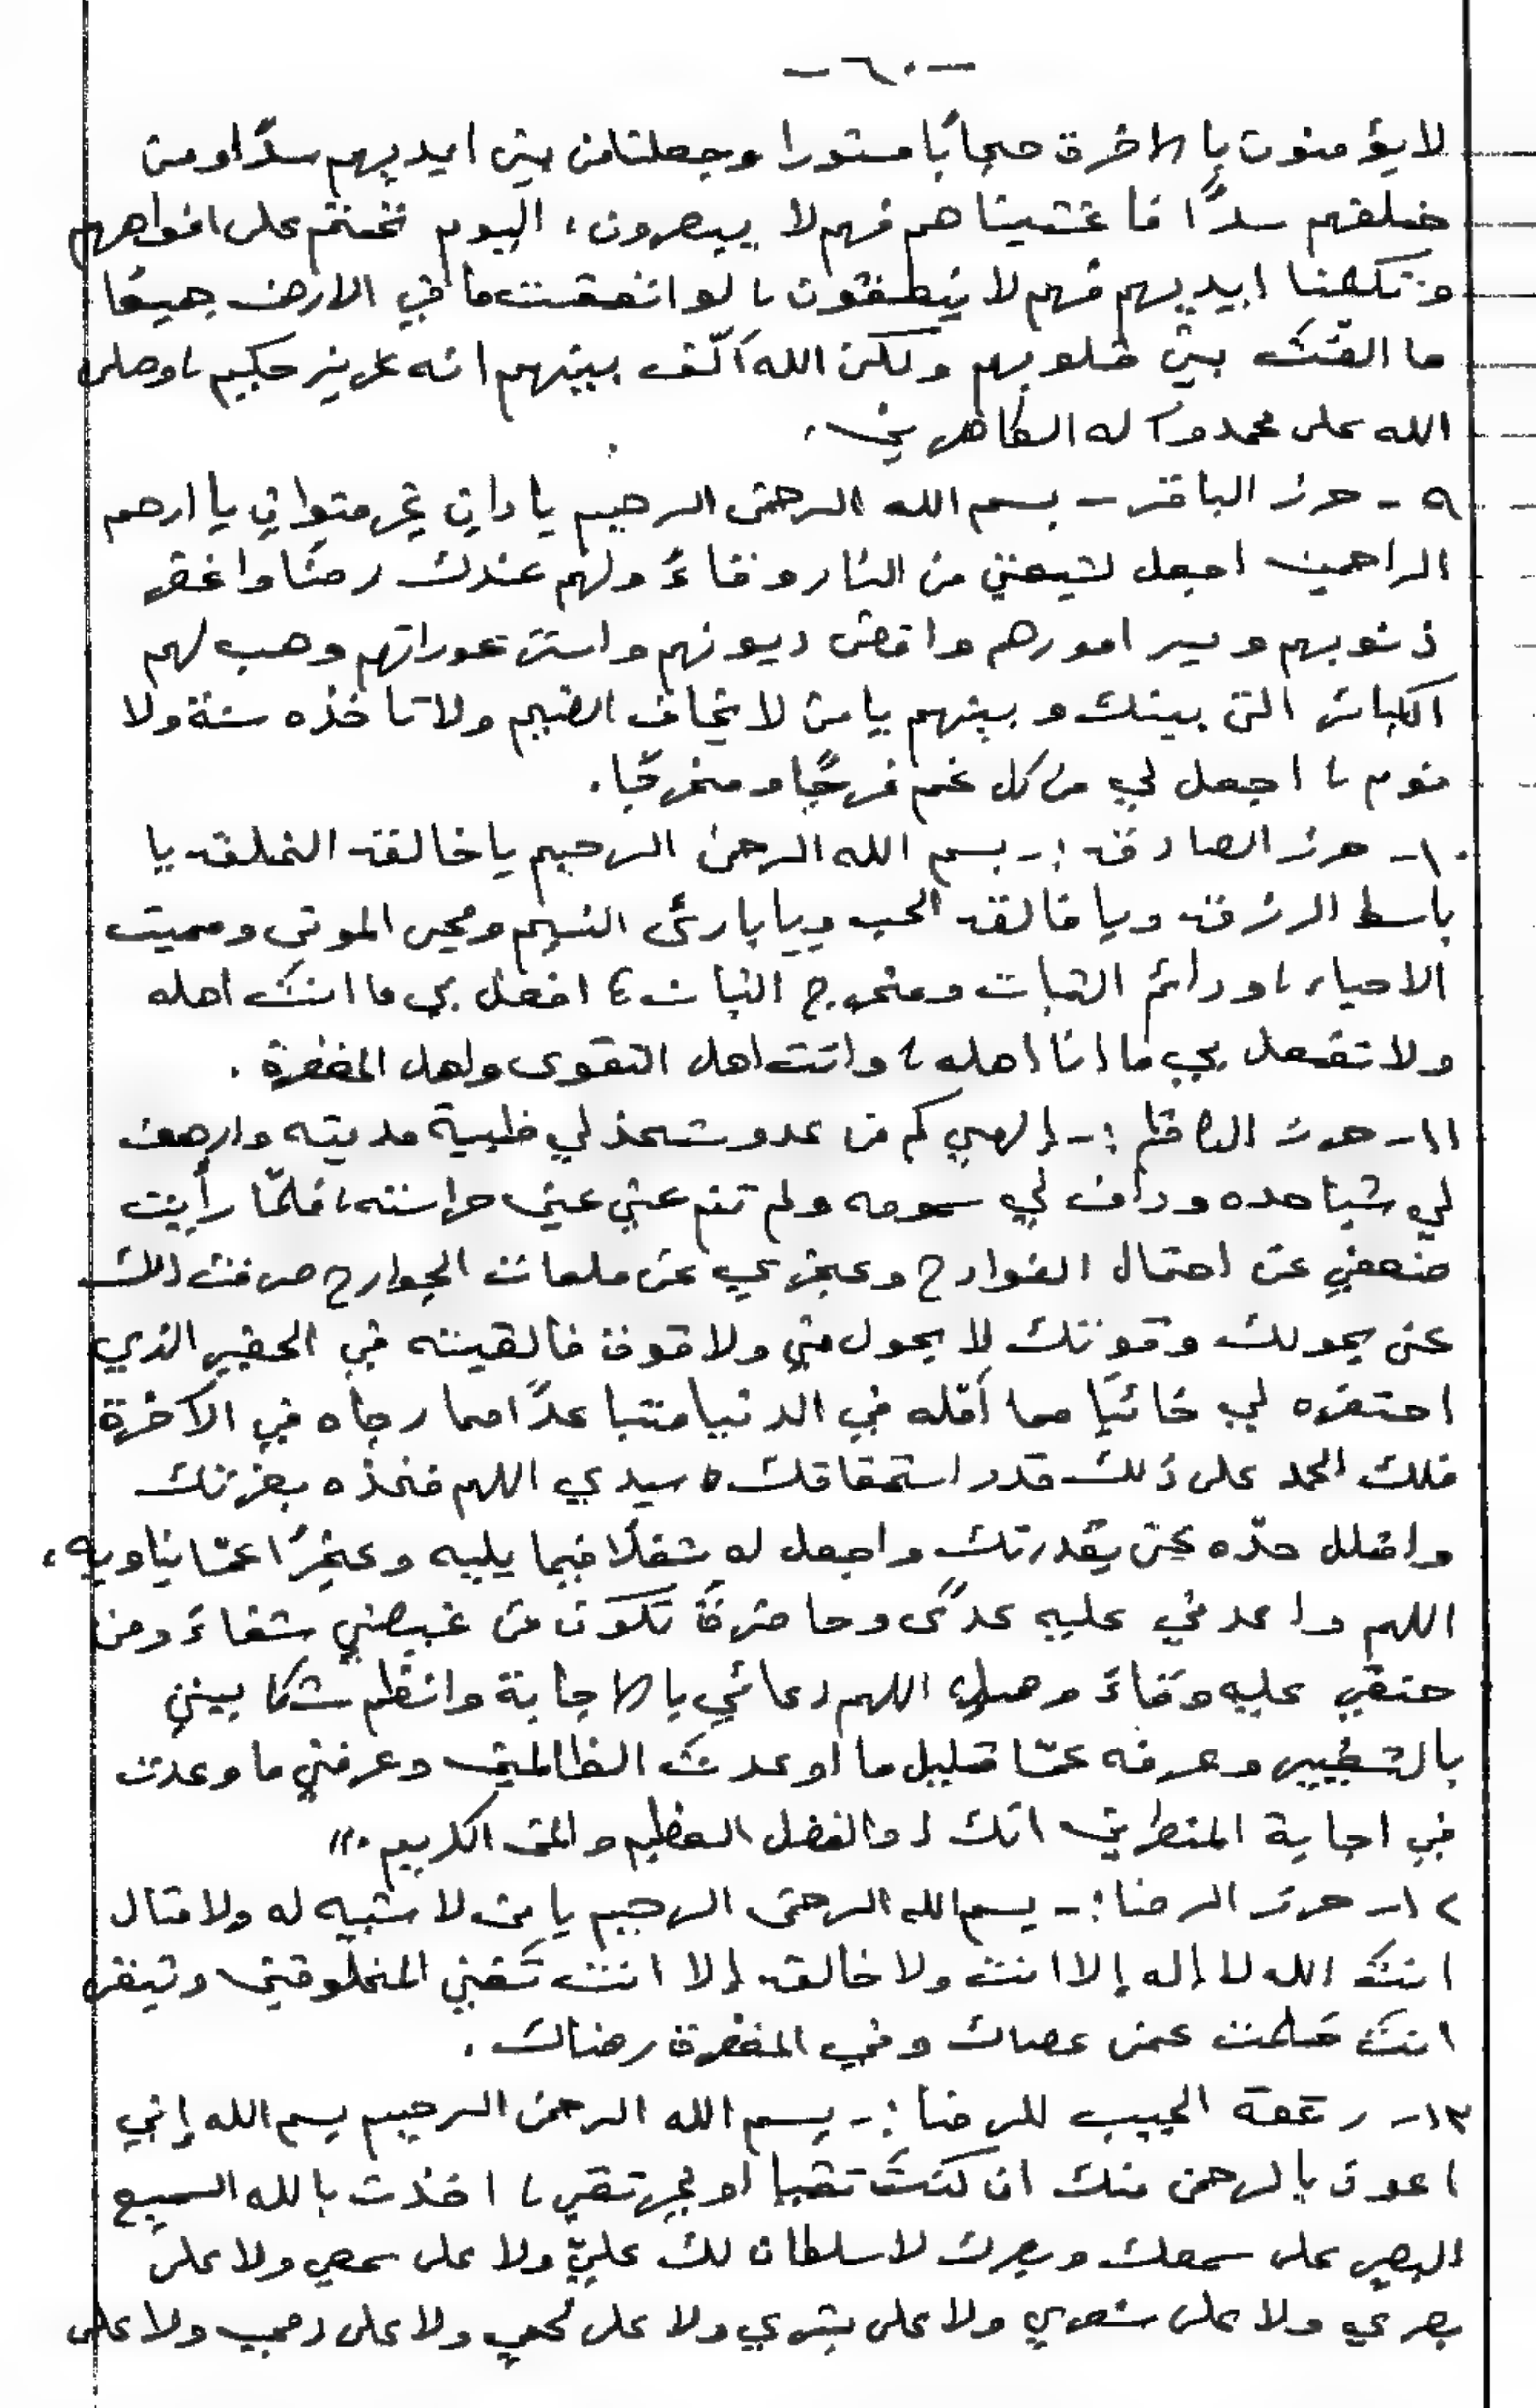 -٦٠-
لا يؤمنون بالاخرة حجابًا مستورا وجعلنا من بين ايديهم سدًّا ومن
خلفهم سدًّا فاغشيناهم فهم لا يبصرون، اليوم نختم على افواههم
وتكلمنا ايديهم فهم لا ينطقون، لو انفقت ما في الارض جميعًا
ما الفت بين قلوبهم ولكن الله ألّف بينهم انه عزيز حكيم، وصلى
الله على محمد وآله الطاهرين،
٩ - حرز الباقر - بسم الله الرحمن الرحيم يا دان غير متوان يا ارحم
الراحمين اجعل لشيعتي من النار وقاءً ولهم عندك رضًا واغفر
ذنوبهم ويسر امورهم واقض ديونهم واستر عوراتهم وهب لهم
الكبائر التي بينك وبينهم يا من لا يخاف الضيم ولا تأخذه سنة ولا
نوم، اجعل لي من كل غم فرجًا ومخرجًا.
١٠- حرز الصادق :- بسم الله الرحمن الرحيم يا خالق الخلق يا
باسط الرزق ويا فالق الحب ويا بارئ النسم ومحي الموتى ومميت
الاحياء، ودائم الثبات ومخرج النبات، افعل بي ما انت اهله
ولا تفعل بي ما انا اهله، وانت اهل التقوى واهل المغفرة.
١١- حرز الكاظم :- إلهي كم من عدو شحذ لي ظبية مديته وارهف
لي شباحده وداف لي سمومه ولم تنم عني عين حراسته، فلمّا رأيت
ضعفي عن احتمال الفوادح وعجزي عن ملمات الجوارح صرفت ذلك
عني بحولك وقوتك لا بحول مني ولا قوة فالقيته في الحفير الذي
احتفره لي خائبًا مما أمّله في الدنيا متباعدًا مما رجاه في الآخرة
فلك الحمد على ذلك قدر استحقاقك سيدي اللهم فخذه بعزتك
وافلل حدّه عني بقدرتك واجعل له شغلًا فيما يليه وعجزًا عمّا يناويه،
اللهم واعدني عليه عدوًى وحاضرةً تكون من غيضي شفاءً ومن
حنقي عليه وقاءً وصل اللهم دعائي بالاجابة وانظم شكايتي
بالتغيير وعرفه عمّا قليل ما اوعدت الظالمين وعرفني ما وعدت
في اجابة المضطرين انك ذو الفضل العظيم والمن الكريم."
١٢- حرز الرضا :- بسم الله الرحمن الرحيم يا من لا شبيه له ولا مثال
انت الله لا إله إلا انت ولا خالق إلا انت تفني المخلوقين وتبقى
انت حلمت عمن عصاك وفي المغفرة رضاك.
١٣- رقعة الجيب للرضا :- بسم الله الرحمن الرحيم بسم الله إني
اعوذ بالرحمن منك ان كنت تقيا او غير تقي، اخذت بالله السميع
البصير على سمعك وبصرك لا سلطان لك عليّ ولا على سمعي ولا على
بصري ولا على شعري ولا على بشري ولا على لحمي ولا على دمي ولا على